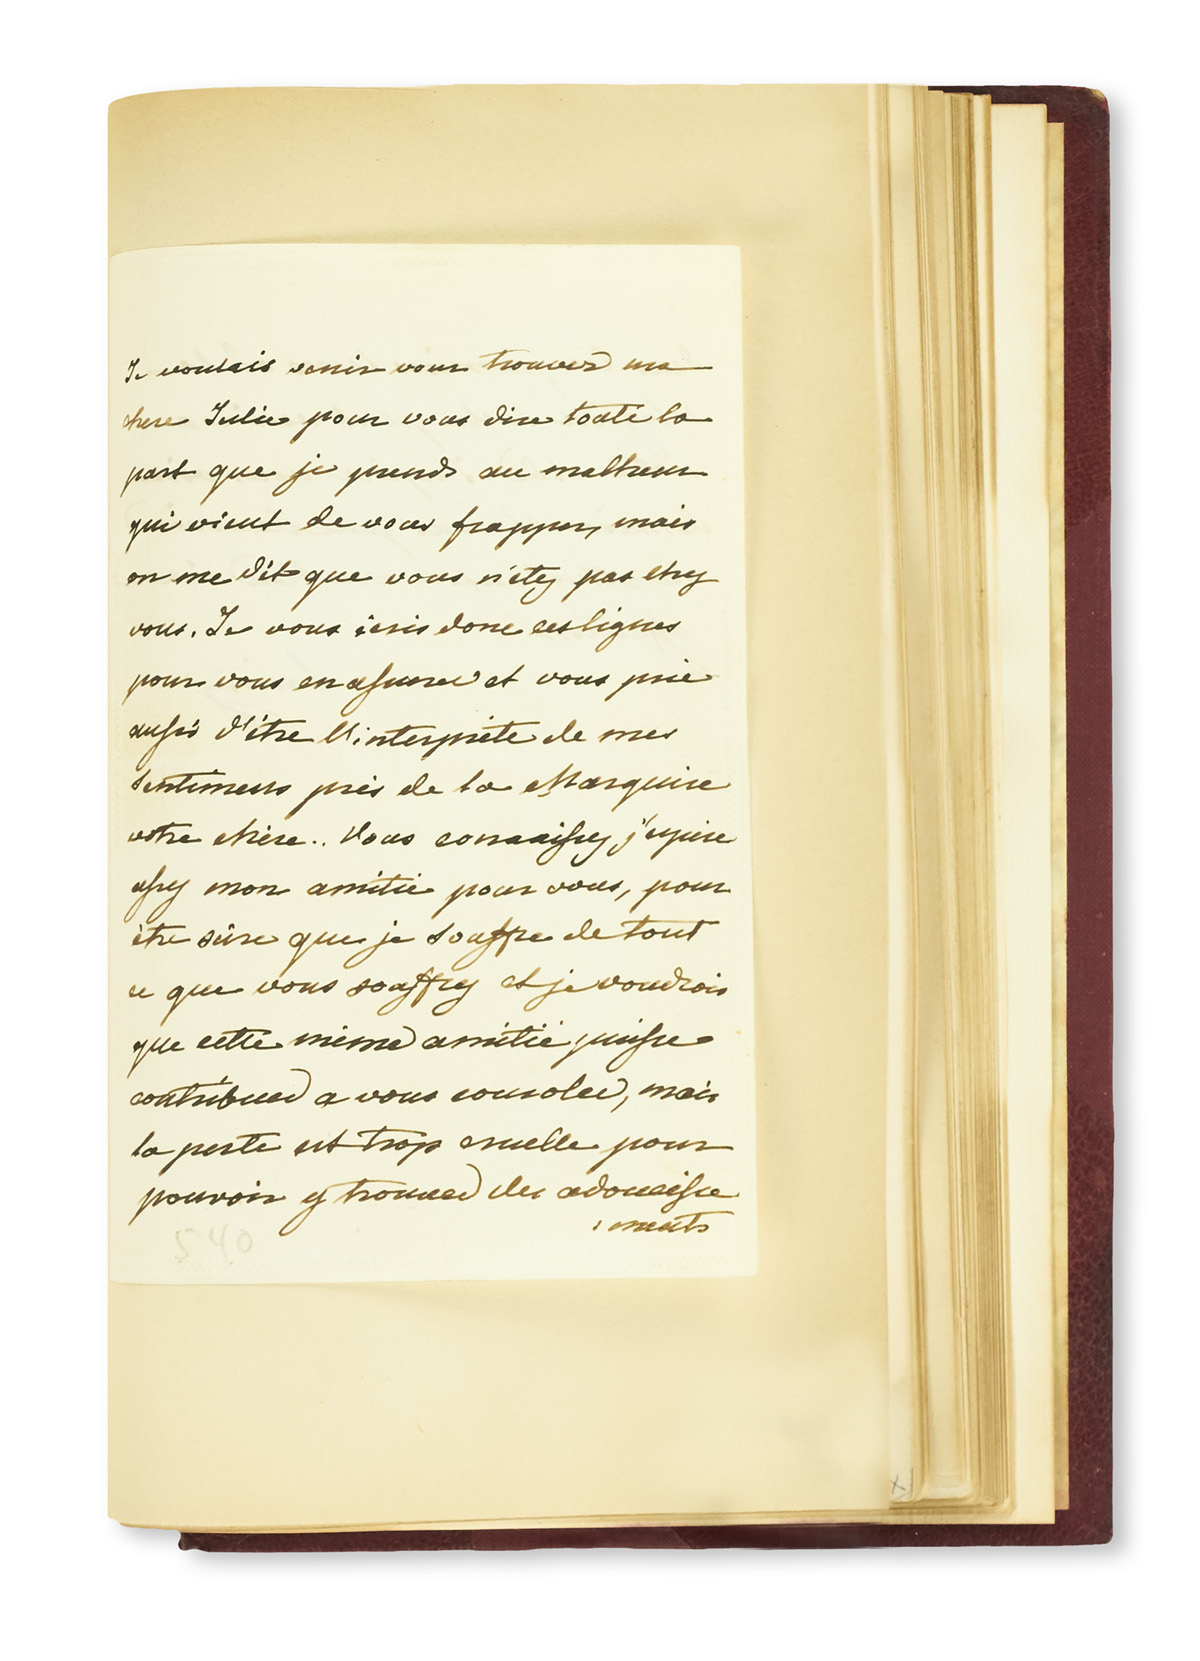 Je voulais venir vous trouver ma
chere Julie pour vous dire toute la
part que je prends au malheur
qui vient de vous frapper, mais
on me dit que vous n'etez pas chez
vous. Je vous ecris donc ces lignes
pour vous en assurer et vous prie
aussi d'être l'interprète de mes
sentiments près de la Marquise
votre Mère.. Vous connaissez j'espère
assez mon amitié pour vous, pour
être sûre que je souffre de tout
ce que vous souffrez et je voudrois
que cette même amitié puisse
contribuer a vous consoler, mais
la perte est trop cruelle pour
pouvoir y trouver des adoucisse
ments
540
x